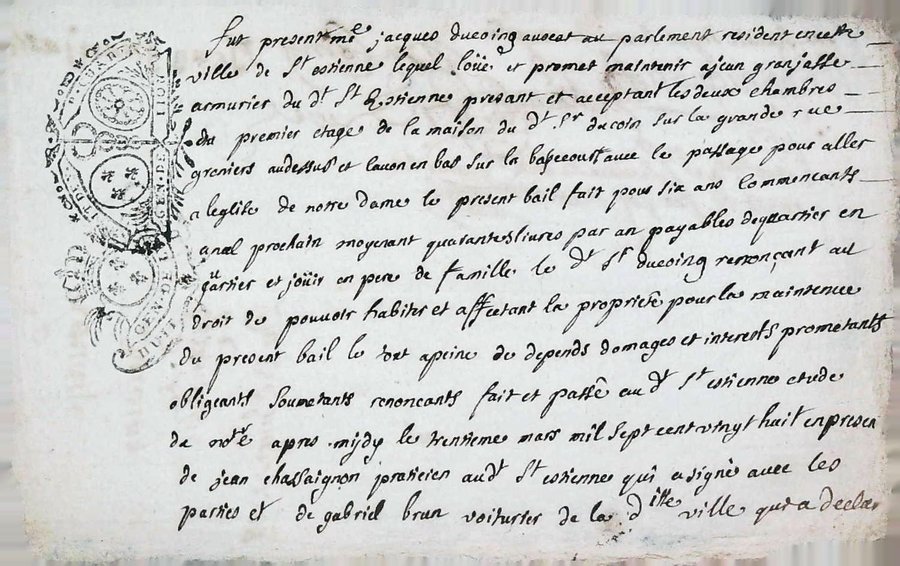 fut present me jacques ducoing avocat au parlement resident en cette
ville de St estienne lequel loüe et promet maintenir a jean granjasse
armurier du dt St Estienne presant et acceptant les deux chambres
du premier etage de la maison du dt Sr ducoin sur la grande rue
greniers audessus et cavon en bas sur la bassecourt avec le passage pour aller
a leglise de notre dame le present bail fait pour six ans commencants
a noel prochain moyenant quarante livres par an payables de quartier en
quartier et joüir en pere de famille le dt Sr ducoing renonçant au
droit de pouvoir habiter et affectant la proprieté pour la maintenue
du present bail le tout a peine de depends domages et interests prometants
obligeants soumetants renoncants fait et passé au dt St estienne etude
du notre apres mydy le trentieme mars mil sept cent vingt huit en presen
de jean chassaignon praticien audt St estienne qui a signé avec les
parties et de gabriel brun voiturier de la ditte ville qui a declar
GEN. DE LION